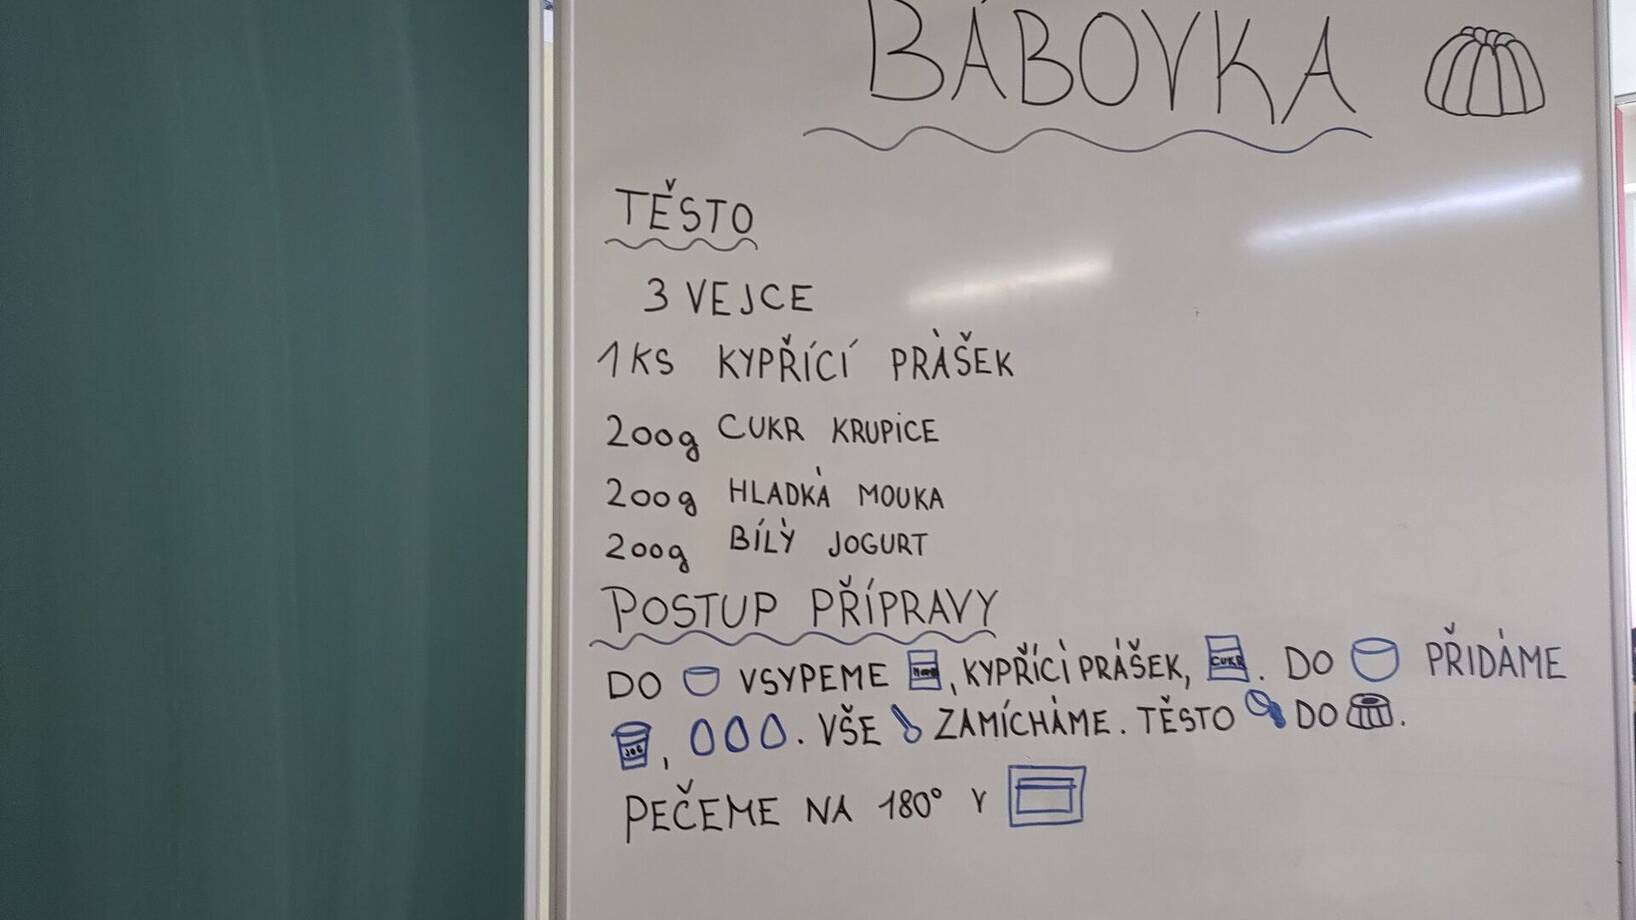 BÁBOVKA
TĚSTO
3 VEJCE
1KS KYPŘÍCÍ PRÁŠEK
200g CUKR KRUPICE
200g HLADKÁ MOUKA
200g BÍLÝ JOGURT
POSTUP PŘÍPRAVY
DO VSYPEME , KYPŘÍCÍ PRÁŠEK, CUKR . DO PŘIDÁME
JOG , . VŠE ZAMÍCHÁME. TĚSTO DO .
PEČEME NA 180° V